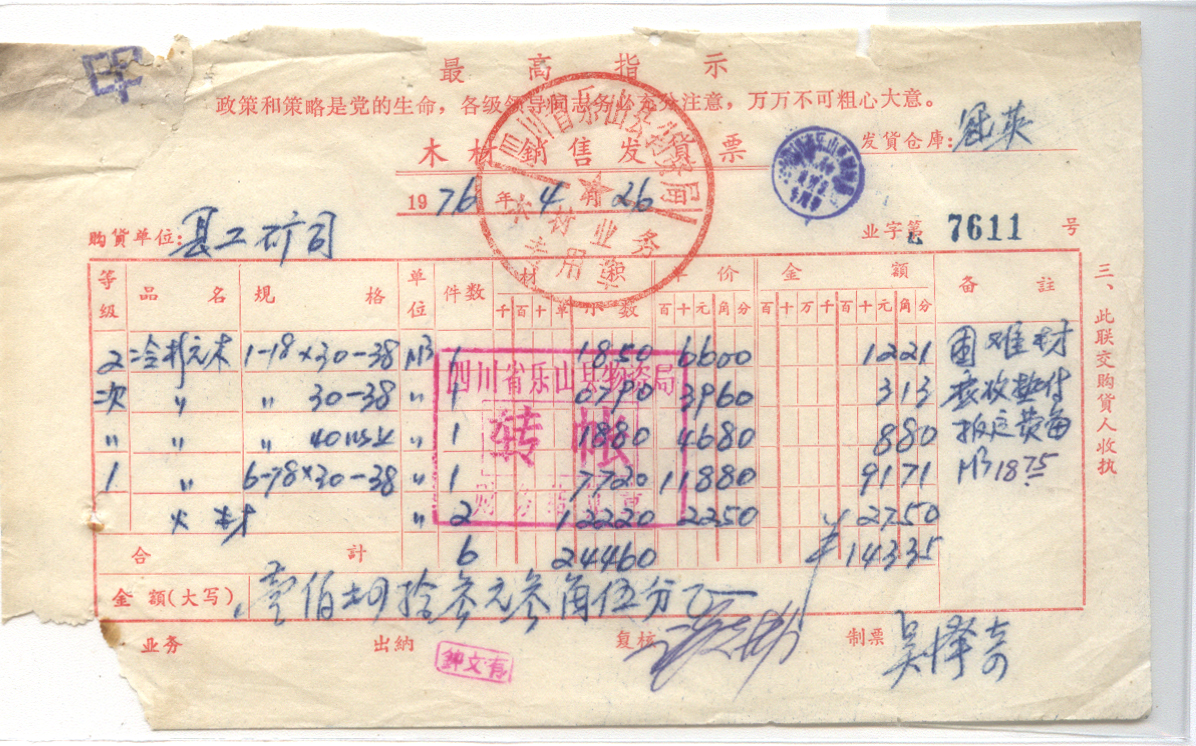 最高指示
政策和策略是党的生命，各级领导同志务必充分注意，万万不可粗心大意。
木材銷售发貨票
发貨仓庫：
1976年4月26
四川省乐山县物资局
木材业务
专用章
购貨单位：县工矿司
业字第 7611 号
等级 品名 规格 单位 件数 材 单价 金額 备註
千百十单小数 百十元角分 百十万千百十元角分
2 冷杉元木 1-18×30-38 M3 1 1850 6600 1221 困难材
次 〃 〃 30-38 〃 1 0790 3960 313
〃 〃 〃 40以上 〃 1 1880 4680 880
1 〃 6-78×30-38 〃 1 7720 11880 9171 M3 1875
火材 〃 2 12220 2250 ¥2750
合计 6 24460 ¥14335
四川省乐山县物资局
转帐
金額(大写) 壹佰肆拾叁元叁角伍分
三、此联交购貨人收执
业务 出納 复核 制票 吴泽奇
鈡文有